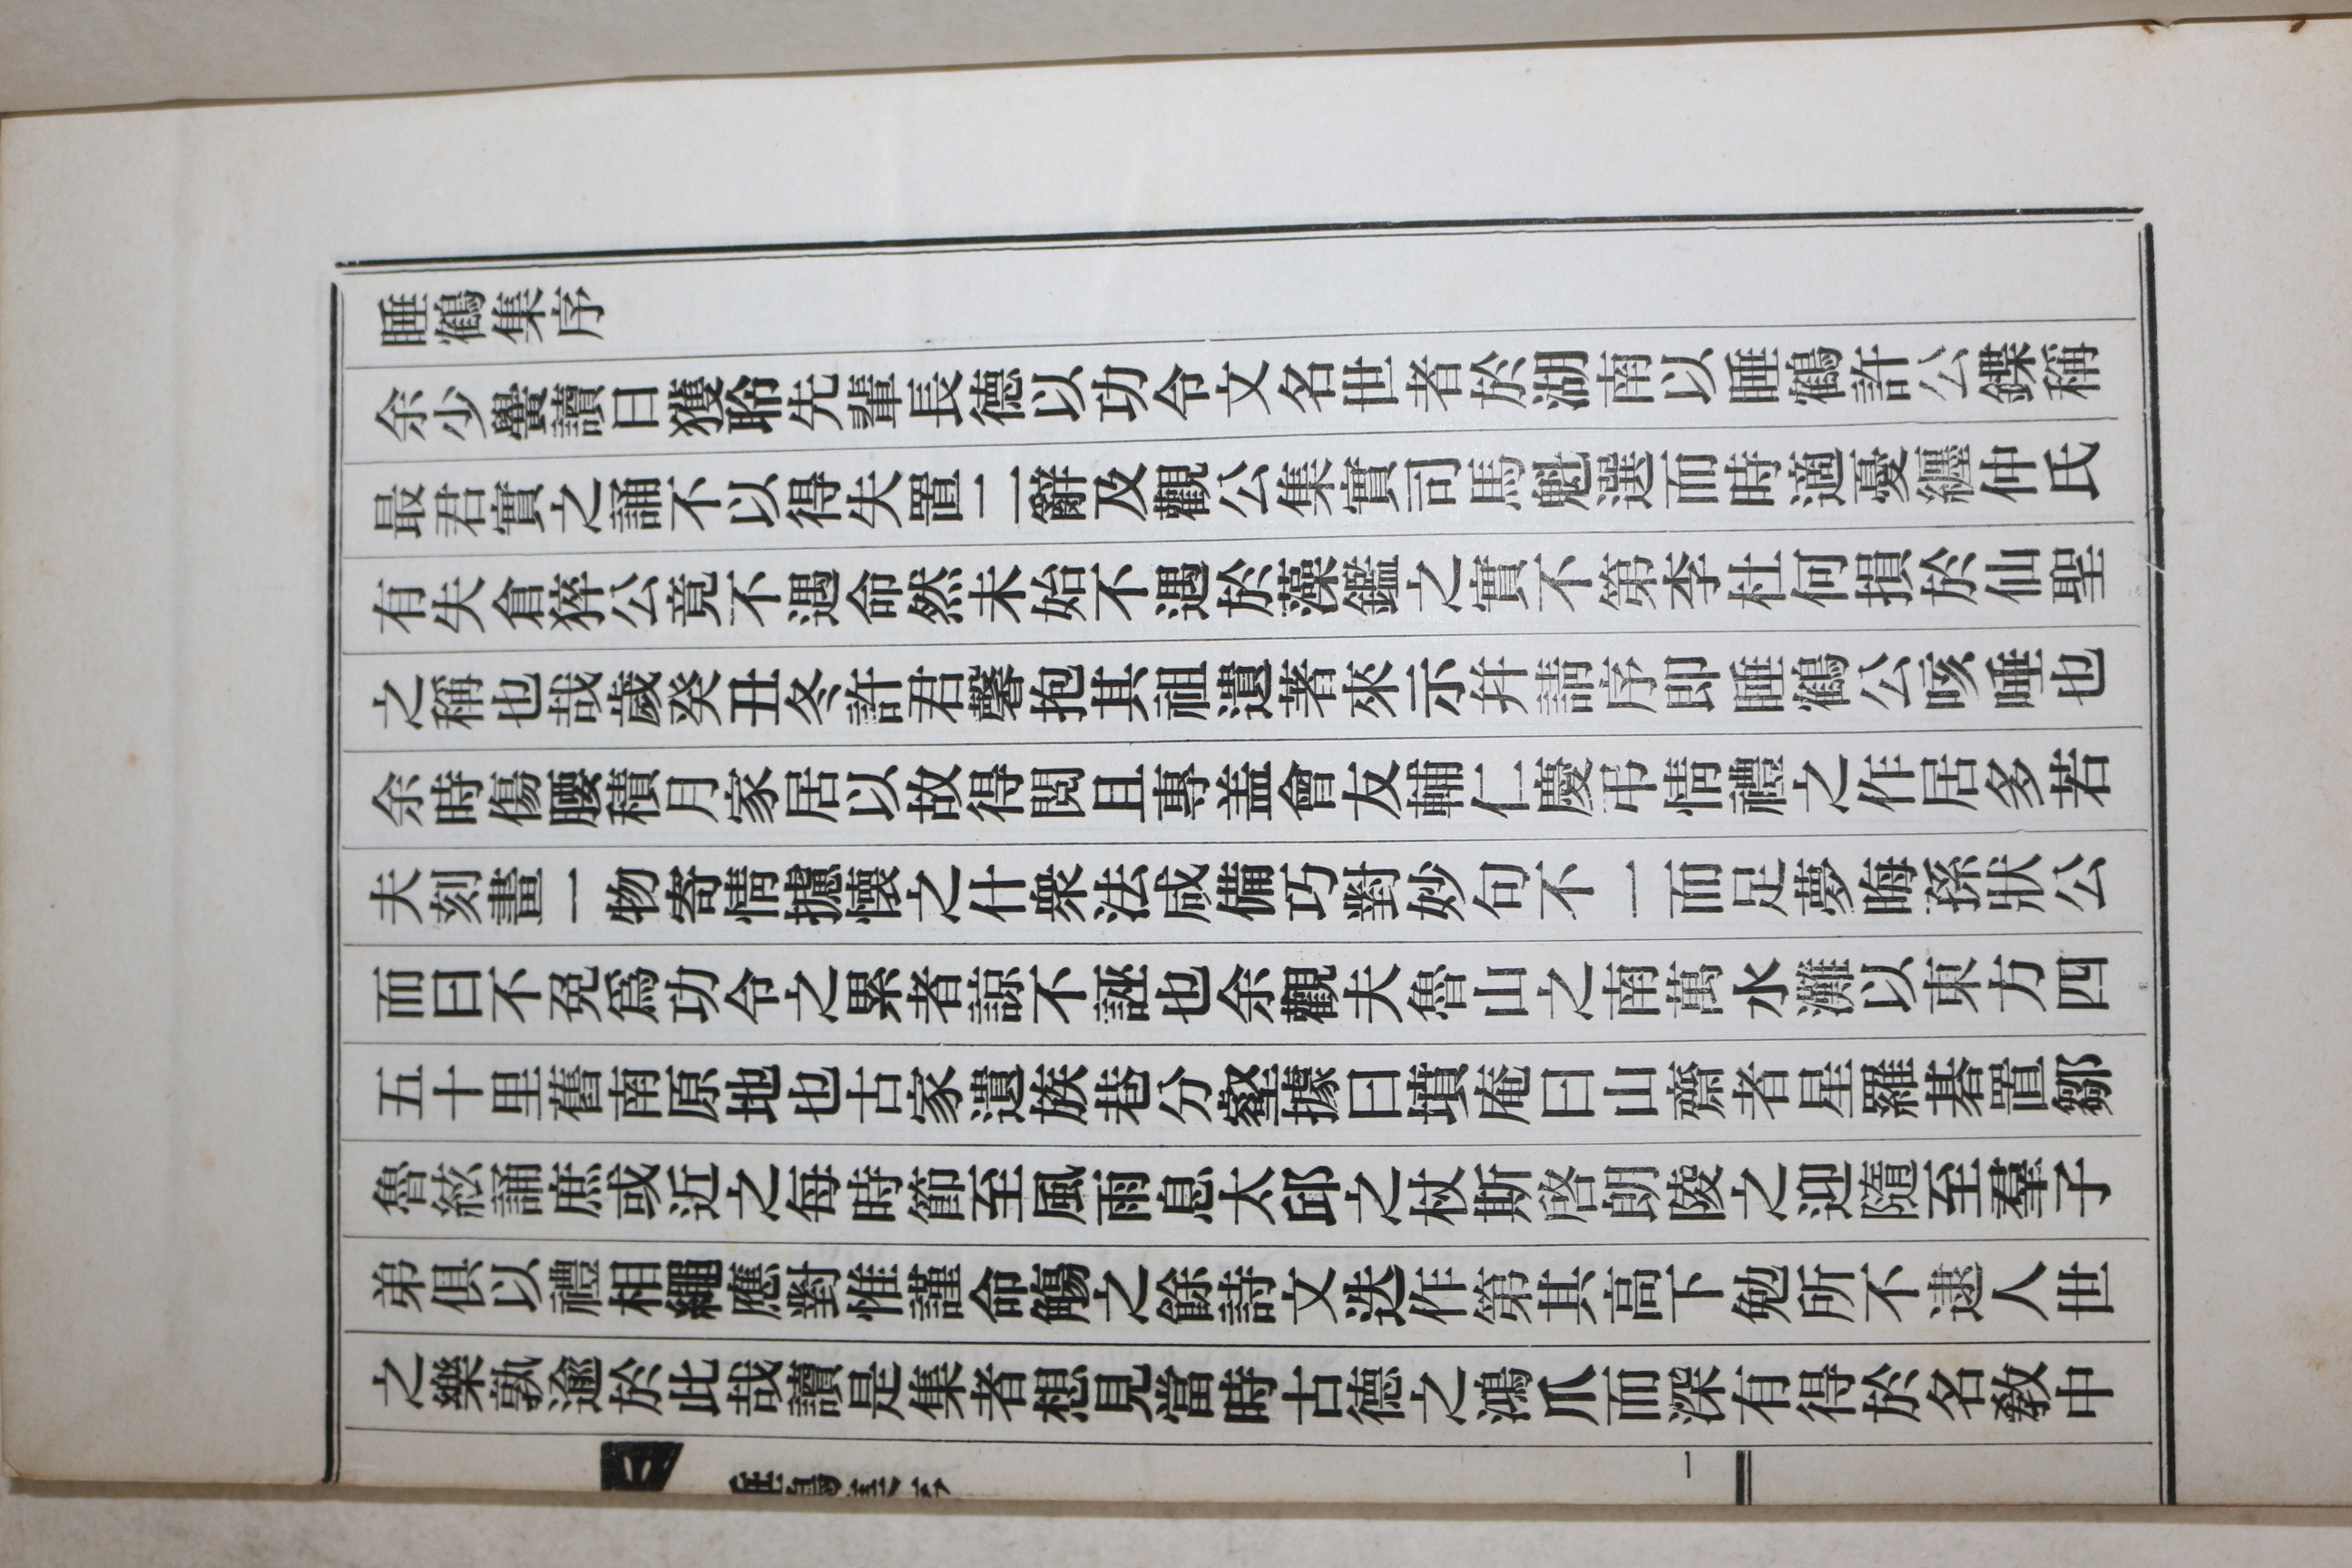 睡鶴集序
余少黌讀日獲聆先輩長德以功令文名世者於湖南以睡鶴許公鍱稱
最君實之誦不以得失置二辭及觀公集實司馬魁選而時適憂纏仲氏
有失倉猝公竟不遇命然未始不遇於藻鑑之實不第李杜何損於仙聖
之稱也哉歲癸丑冬許君馨抱其祖遺著來示幷請序即睡鶴公咳唾也
余時傷腰積月家居以故得閲且專盖會友輔仁慶弔情禮之作居多若
夫刻畫一物寄情攄懷之什衆法咸備巧對妙句不一而足夢晦孫狀公
而曰不免爲功令之累者諒不誣也余觀夫魯山之南萬水灘以東方四
五十里舊南原地也古家遺族巷分壑據曰墳庵曰山齋者星羅碁置鄒
魯絃誦庶或近之每時節至風雨息太邱之杖斯啓朗陵之迎隨至羣子
弟俱以禮相繩應對惟謹命觴之餘詩文迭作第其高下勉所不逮人世
之樂孰逾於此哉讀是集者想見當時古德之鴻爪而深有得於名敎中
睡鶴集序
一